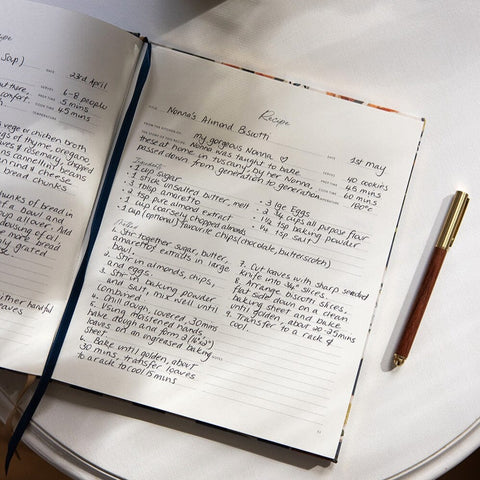 Recipe
Soup)
DATE 23rd April
SERVES 6-8 people
PREP TIME 5 mins
COOK TIME 45 mins
out there,
comfort.
vege or chicken broth
gs of thyme, oregano,
ves & rosemary, chopped
ns cannellini beans
an rind & cheese
bread chunks
hunks of bread in
a bowl and
roup over. Add
dousing of
more bread
ly grated
either handful
leaves
Recipe
TITLE Nonna's Almond Biscotti
DATE 1st May
FROM THE KITCHEN OF my gorgeous Nonna ♡
SERVES 40 cookies
THE STORY OF THIS RECIPE Nonna was taught to bake
PREP TIME 45 mins
these at home in tuscany, by her Nonna.
COOK TIME 60 mins
passed down from generation to generation
Ingredients
· 1 cup sugar
· 1 stick unsalted butter, melt
· 3 tblsp amaretto
· 2 tsp pure almond extract
· 1 cup coarsely chopped almonds
· 1 cup (optional) favourite chips (chocolate, butterscotch)
· 3 lge Eggs
· 2 3/4 cups all purpose flour
· 1 1/2 tsp baking powder
· 1/4 tsp salt
Method
1. Stir together sugar, butter,
amaretto & extracts in large
bowl.
2. Stir in almonds, chips,
and eggs.
3. Stir in baking powder
and salt, mix well until
combined.
4. Chill dough, covered, 30 mins
5. Using moistened hands,
halve dough and form 2 (16"x2")
loaves on an
baking
sheet
6. Bake until golden, about
30 mins, transfer loaves
to a rack to cool 15 mins
7. Cut loaves with sharp serrated
knife into 3/4" slices.
8. Arrange biscotti slices,
flat side down on a clean
baking sheet and bake
until golden, about 20-25 mins
9. Transfer to a rack &
cool.
NOTES